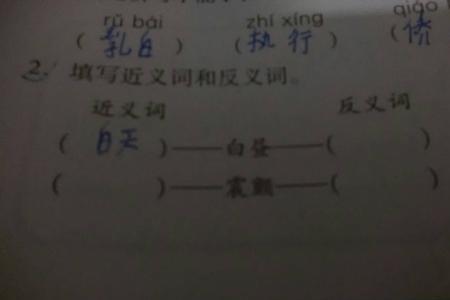 rǔ bái zhí xíng qiáo
(乳白) (执行) (侨
2. 填写近义词和反义词。
近义词 反义词
(白天)——白昼——( )
( )——震颤——( )